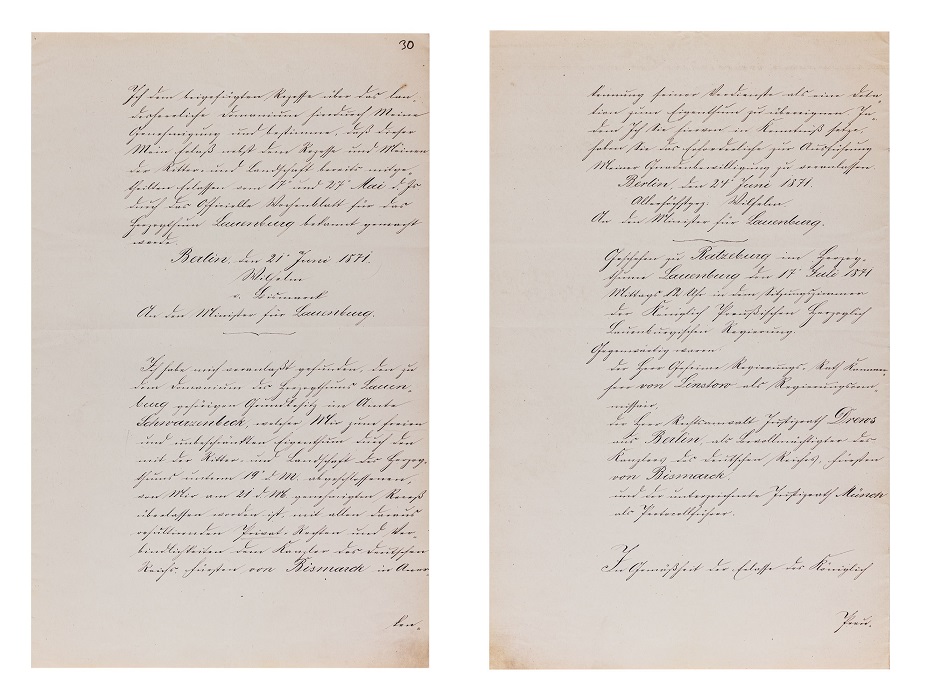 30
Ich dem beigefügten Rezesse über das lan-
desherrliche Domanium hierdurch Meine
Genehmigung und bestimme, daß dieser
Mein Erlaß nebst dem Rezesse und Meinen
der Ritter- und Landschaft bereits mitge-
theilten Erlassen vom 17t und 27t Mai d. Js
durch das Offizielle Wochenblatt für das
Herzogthum Lauenburg bekannt gemacht
werde.
Berlin, den 21t Juni 1871.
Wilhelm
v. Bismarck
An den Minister für Lauenburg.
Ich habe mich veranlaßt gefunden, den zu
dem Domanium des Herzogthums Lauen-
burg gehörigen Grundbesitz im Amte
Schwarzenbeck, welcher Mir zum freien
und unbeschränkten Eigenthum durch den
mit der Ritter- und Landschaft des Herzog-
thums unterm 19t d. M. abgeschlossenen,
von Mir am 21 d. M. genehmigten Rezeß
überlassen worden ist, mit allen daraus
resultirenden Privat-Rechten und Ver-
bindlichkeiten dem Kanzler des Deutschen
Reichs, Fürsten von Bismarck in Aner-
ken-
kennung seiner Verdienste als eine Dota-
tion zum Eigenthum zu übereignen. In-
dem Ich Sie hiervon in Kenntniß setze,
haben Sie das Erforderliche zur Ausführung
Meiner Gnadenbewilligung zu veranlassen.
Berlin, den 24t Juni 1871.
Allerhöchstgez. Wilhelm.
An den Minister für Lauenburg.
Geschehen zu Ratzeburg im Herzog-
thume Lauenburg den 17t Juli 1871
Mittags 12 Uhr in dem Sitzungszimmer
der Königlich Preußischen Herzoglich
Lauenburgischen Regierung.
Gegenwärtig waren
der Herr Geheime Regierungs-Rath Kammer-
herr von Linstow als Regierungscom-
missair,
der Herr Rechtsanwalt Justizrath Drews
aus Berlin, als Bevollmächtigter des
Kanzlers des Deutschen Reiches, Fürsten
von Bismarck,
und der unterzeichnete Justizrath Münch
als Protocollführer.
In Gemäßheit der Erlasse des Königlich
Preu-